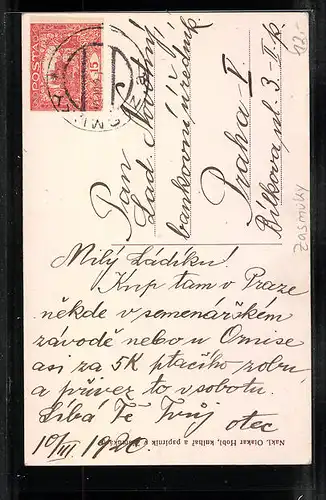 POSTA
15
Pan
Lad. Novotný
bankovní úředník
Praha I.
Bílkova ul. 3.-I.p.
12.-
Zasmuky
Milý Ládíku!
Kup tam v Praze
někde v semenářském
závodě nebo u Omise
asi za 5K ptačího zobu
a přivez to v sobotu.
Líbá Tě Tvůj otec
10/III 1920
Nakl. Otakar Hobl, knihař a papírník v